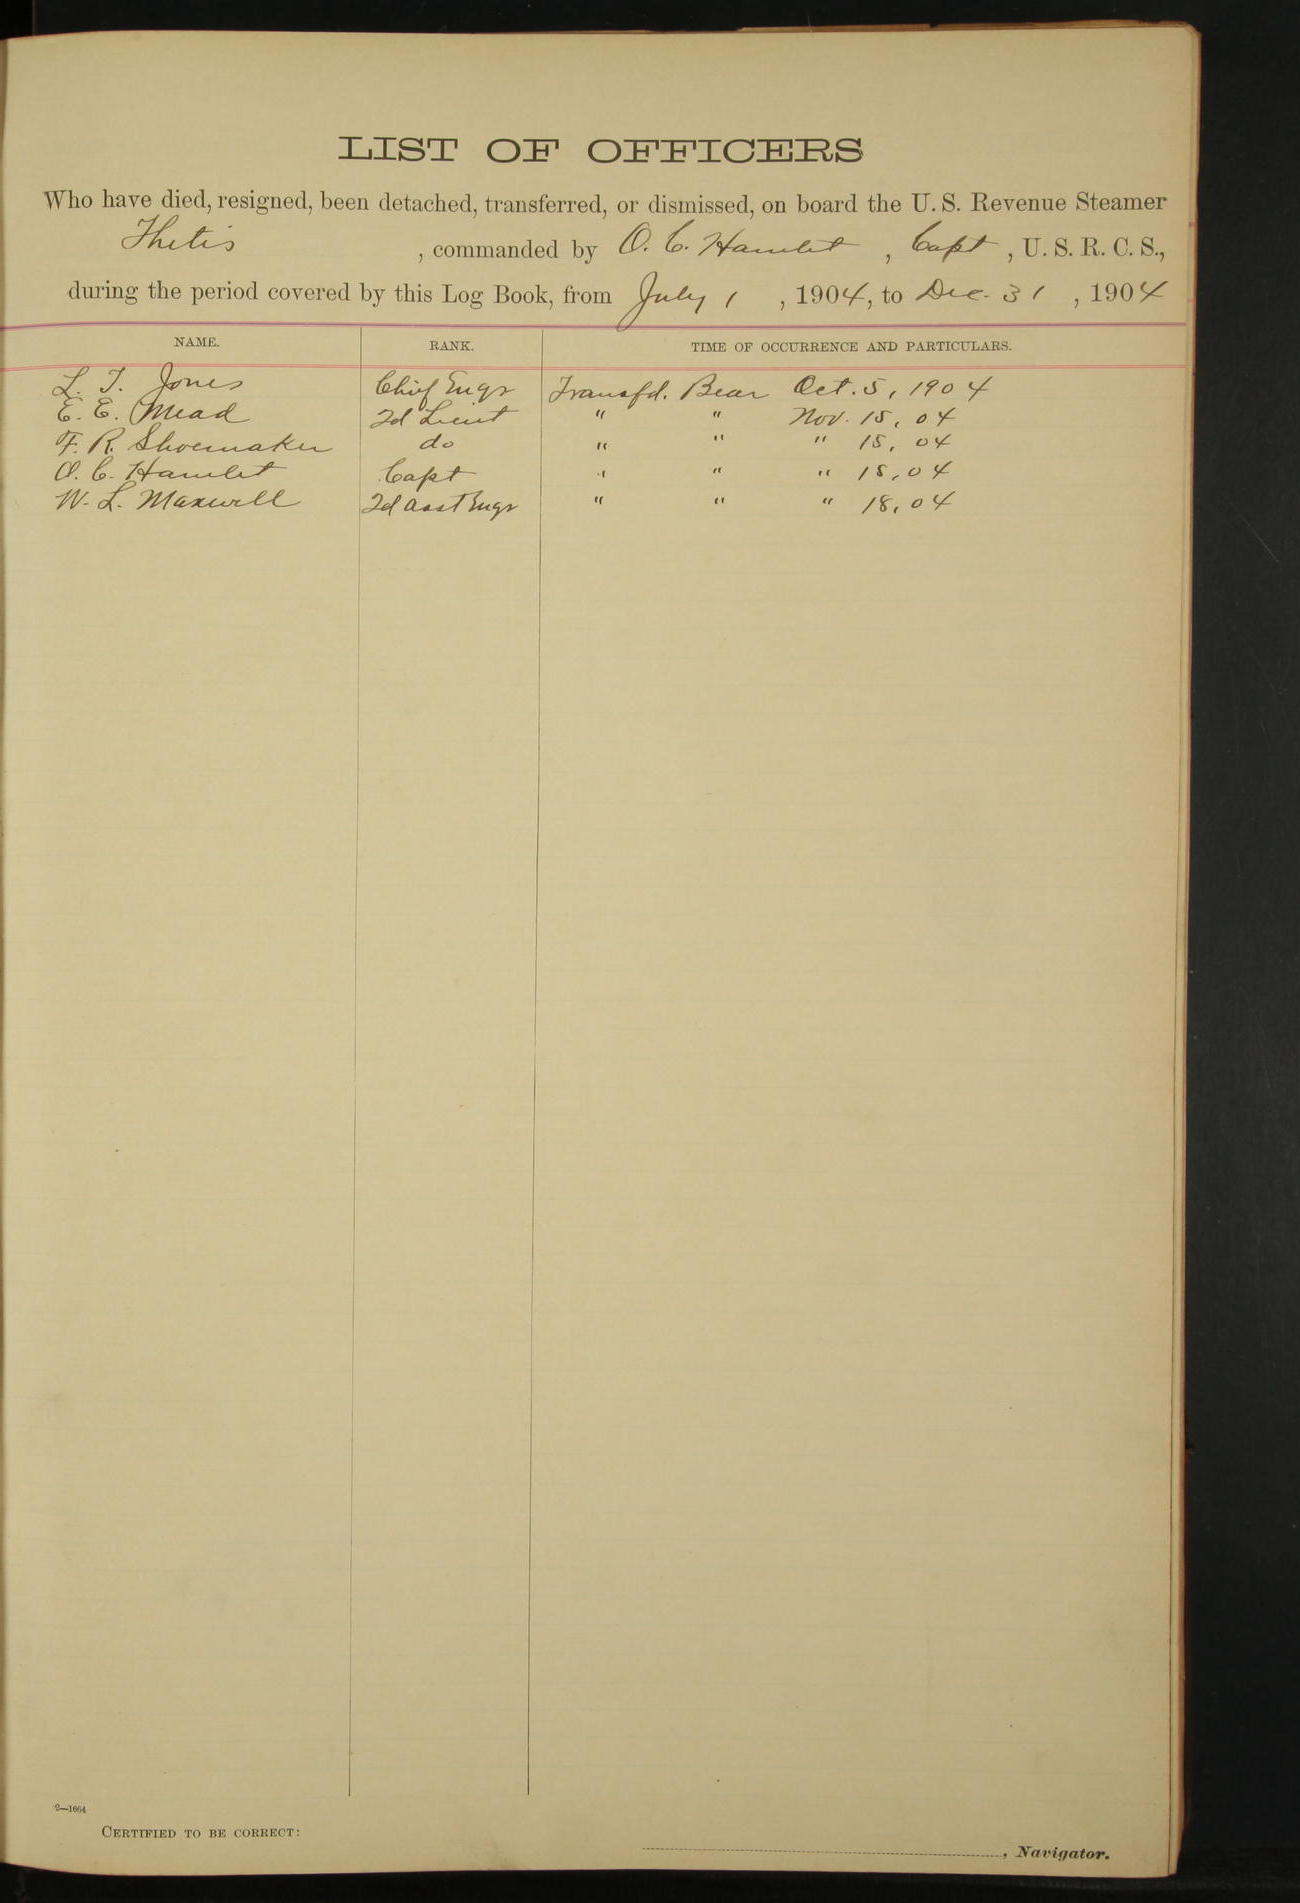 LIST OF OFFICERS
Who have died, resigned, been detached, transferred, or dismissed, on board the U. S. Revenue Steamer
Thetis , commanded by O. C. Hamlet , Capt , U. S. R. C. S.,
during the period covered by this Log Book, from July 1 , 1904, to Dec. 31 , 1904
NAME. RANK. TIME OF OCCURRENCE AND PARTICULARS.
L. T. Jones Chief Engr Transfd. Bear Oct. 5, 1904
E. E. Mead 2d Lieut " " Nov. 15, 04
F. R. Shoemaker do " " " 15, 04
O. C. Hamlet Capt " " " 15, 04
W. L. Maxwell 2d Asst Engr " " " 18, 04
2—1664
CERTIFIED TO BE CORRECT:
, Navigator.